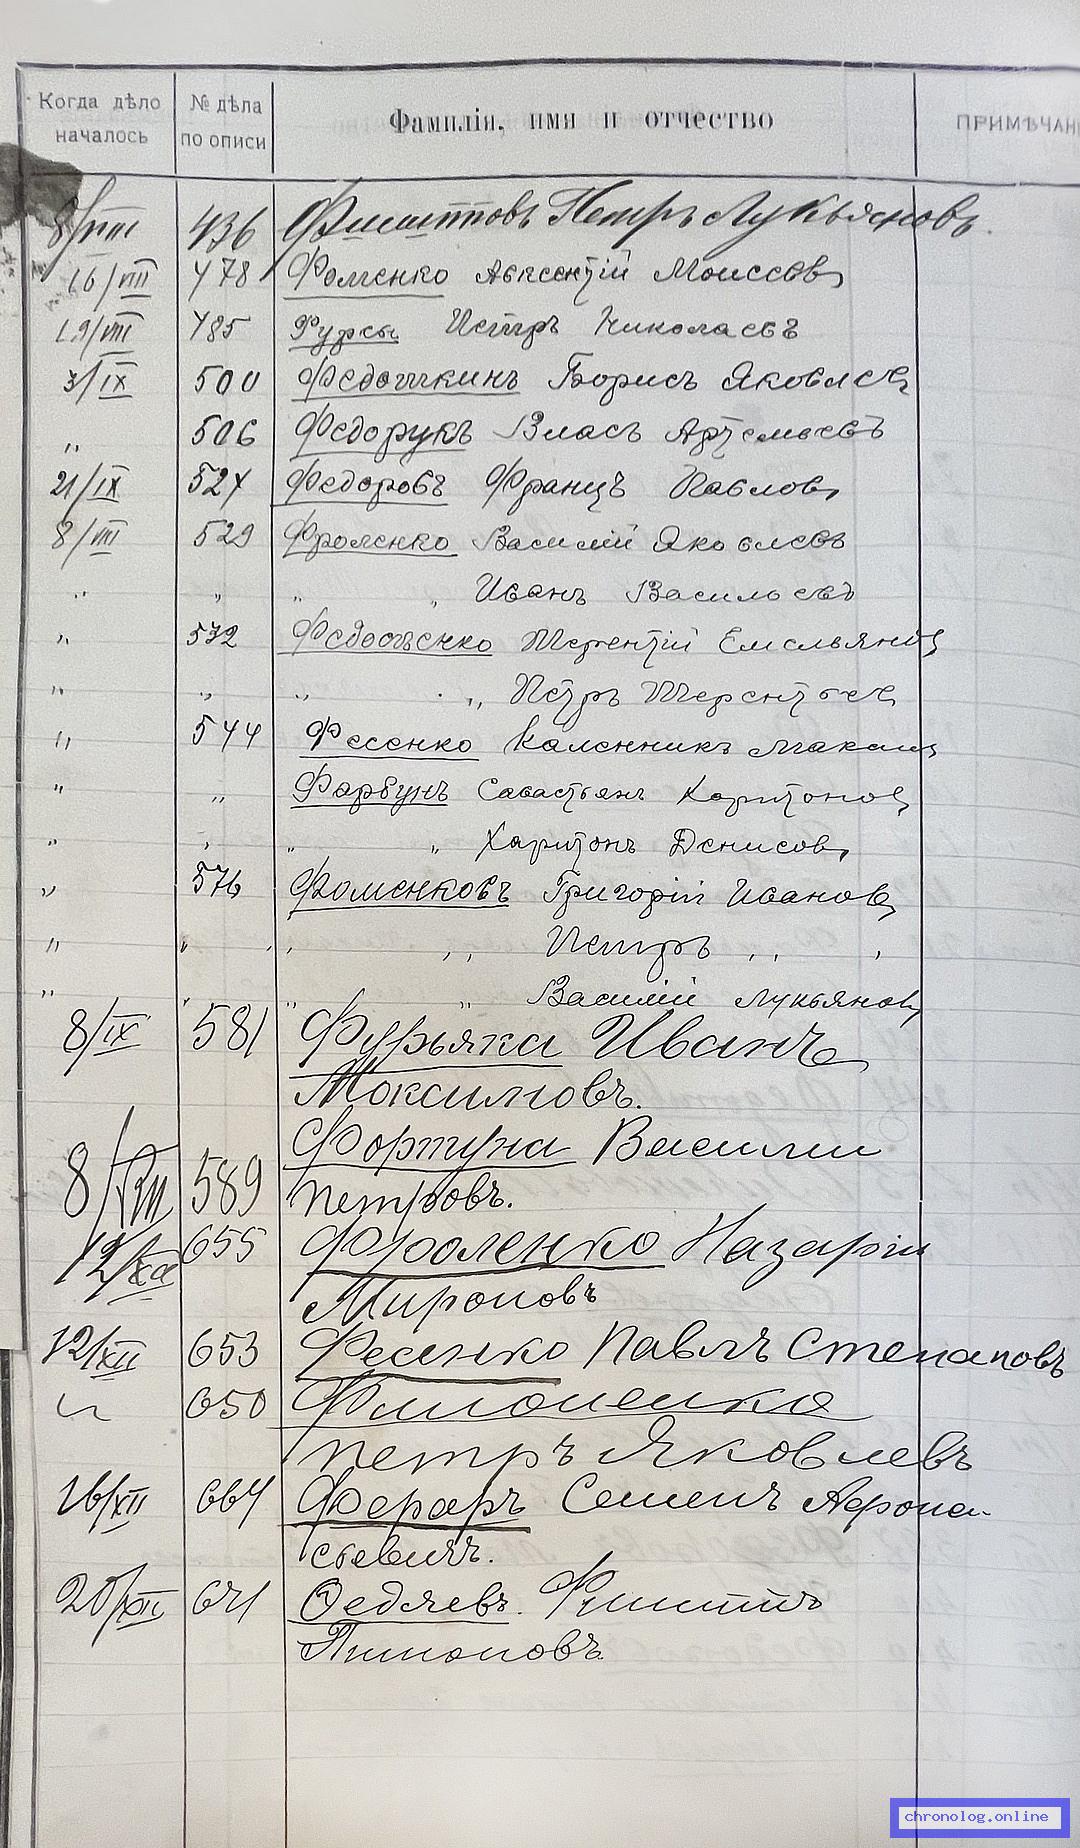 Когда дѣло началось
№ дѣла по описи
Фамилія, имя и отчество
ПРИМѢЧАН
8/VIII 436 Филипповъ Петръ Лукьяновъ.
16/VIII 478 Фоменко Авксентій Моисеев
19/VIII 485 Фурсы Петръ Николаевъ
3/IX 500 Федошкинъ Борисъ Яковлев
„ 506 Федорукъ Власъ Артемьевъ
21/IX 524 Федоровъ Францъ Павлов
8/VIII 529 Фроленко Василій Яковлевъ
„ „ „ „ Иванъ Васильевъ
„ 532 Федосьенко Терентій Емельянов
„ „ „ „ Петръ Терентьев
„ 544 Фесенко Каленникъ Максим
„ „ Фарбунъ Савастьянъ Харитонов
„ „ „ „ Харитонъ Денисов
„ 576 Фоменковъ Григорій Иванов
„ „ „ „ Петръ „ „
„ „ „ „ Василій Лукьянов
8/IX 581 Фурьяка Иванъ
Максимовъ.
8/VIII 589 Фортуна Василий
Петровъ.
12/XII 655 Фроленко Назарій
Мироновъ
12/XII 653 Фесенко Павлъ Степановъ
„ 650 Филоненко
Петръ Яковлевъ
16/XII 664 Фераръ Семенъ Афона-
сьевичъ.
20/XII 671 Федяевъ. Филиппъ
Пимоновъ.
chronolog.online